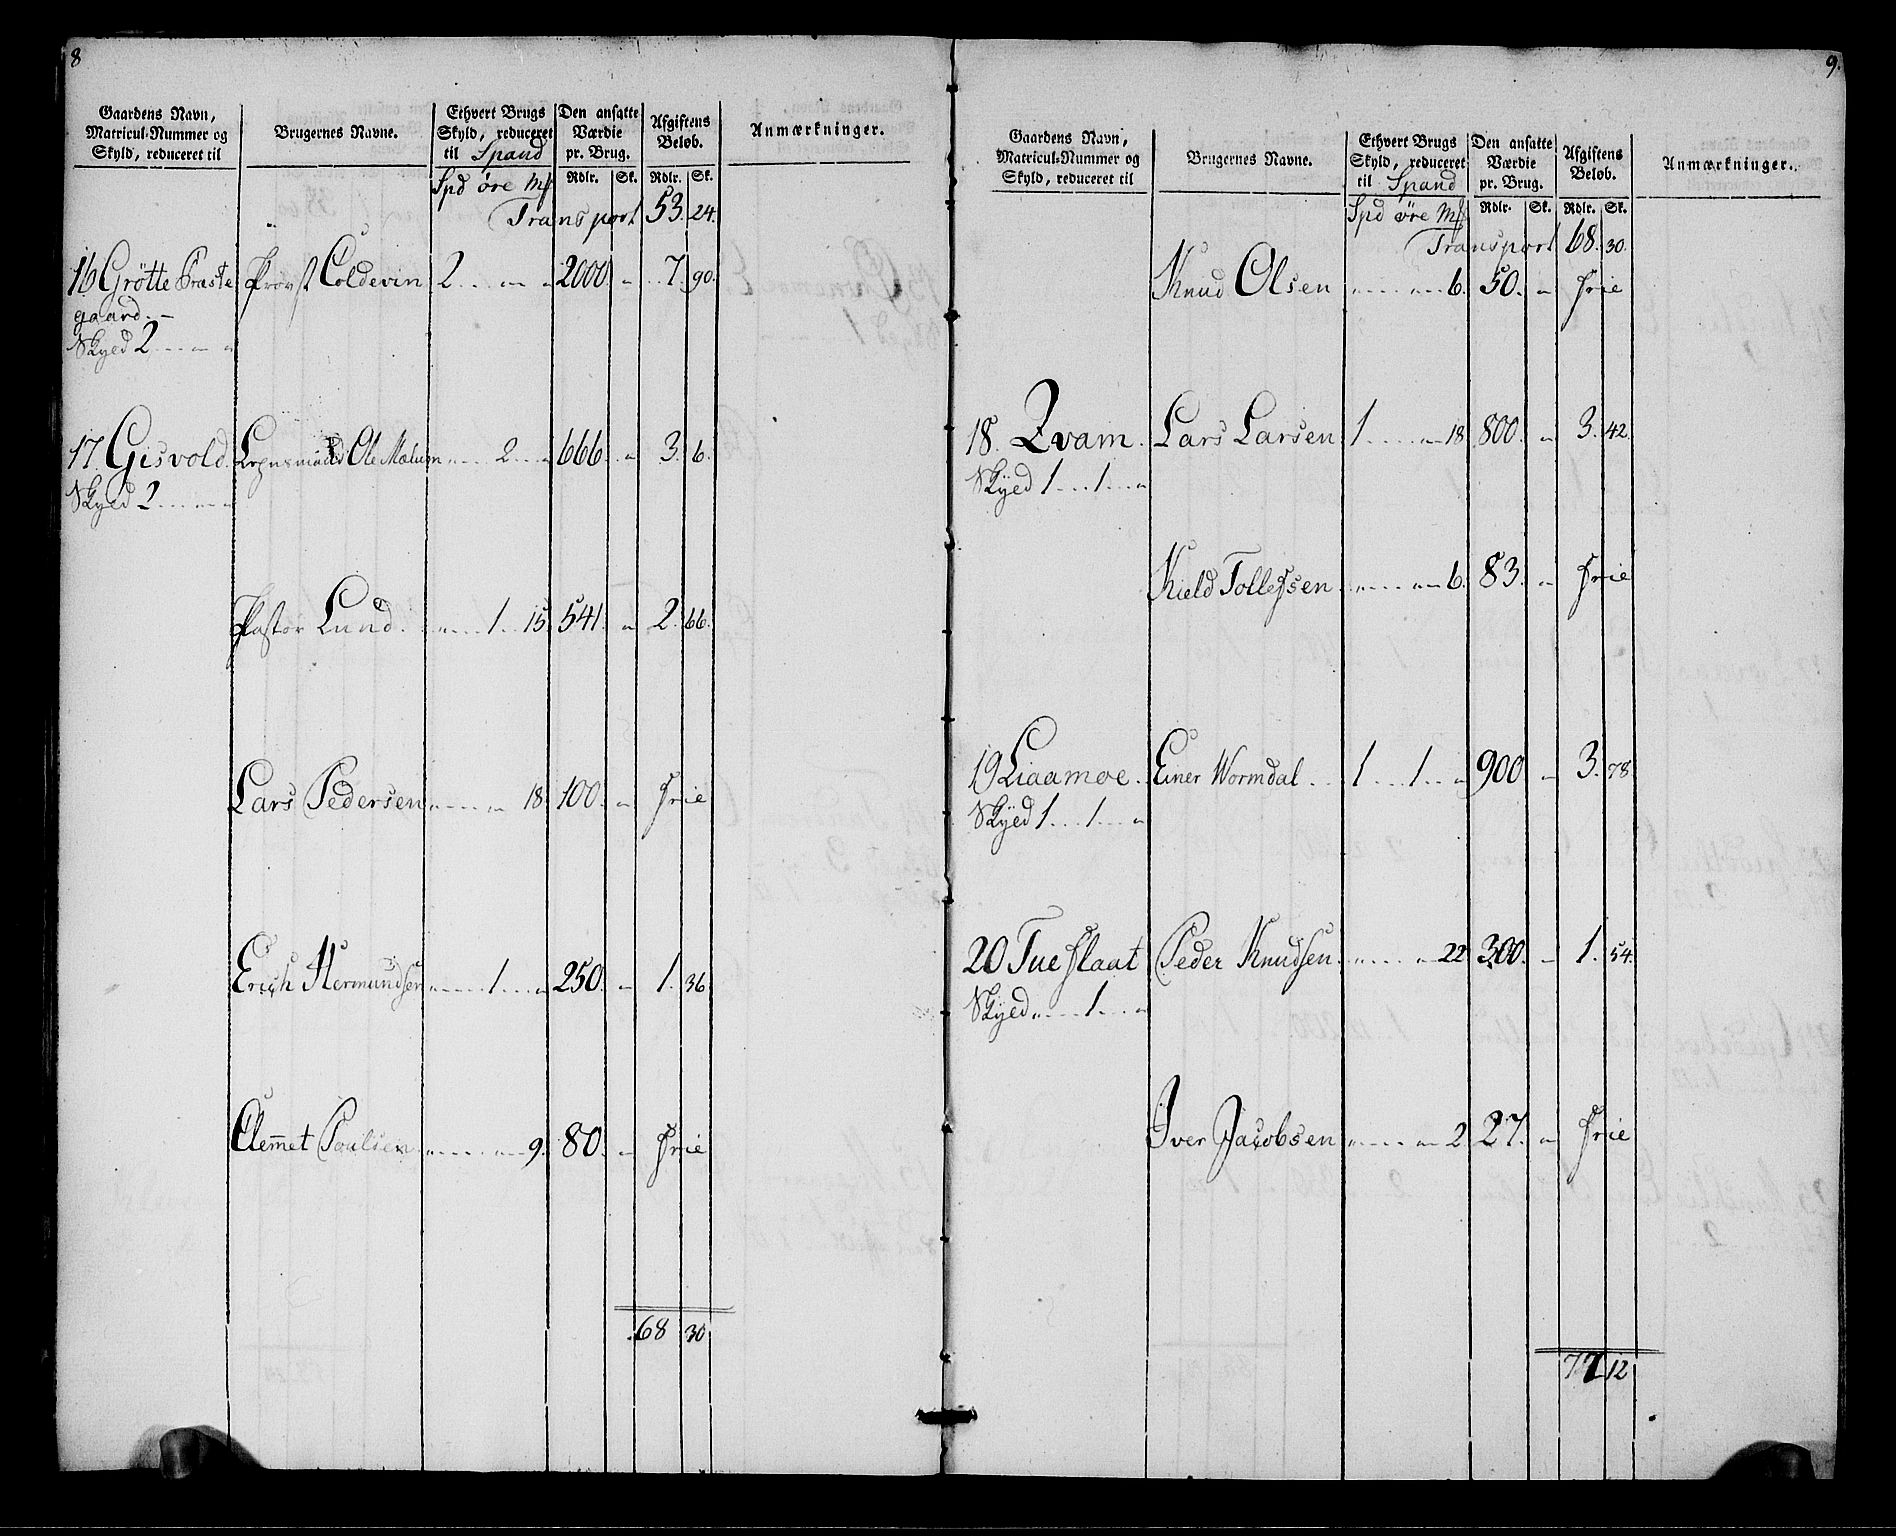 8
Gaardens Navn, Matricul-Nummer og Skyld, reduceret til
Brugernes Navne.
Ethvert Brugs Skyld, reduceret til Spand
Den ansatte Værdie pr. Brug.
Afgiftens Beløb.
Anmærkninger.
Spd øre Mk Rdlr. Sk. Rdlr. Sk.
Transport 53. 24.
16 Grötte Præste Provst Coldevin 2 . . . „ . „ 2000 „ 7. 90.
gaard. –
Skyed 2 . . „ . „
17. Gisvold. Ole Mælum „ . . . 2 . . „ 666. „ 3. 6.
Skyed 2 . . . „ . „
Pastor Lund. „ . . . 1 . . 15. 541. „ 2. 66.
Lars Pedersen „ . . . „ . 18. 100. „ frie
Erich Hermundsen „ . . . 1 . . „ 250. „ 1. 36.
Clem̅et Poulsen „ . . . „ . 9. 80. „ frie
68 30
9.
Gaardens Navn, Matricul-Nummer og Skyld, reduceret til
Brugernes Navne.
Ethvert Brugs Skyld, reduceret til Spand
Den ansatte Værdie pr. Brug.
Afgiftens Beløb.
Anmærkninger.
Spd øre Mk Rdlr. Sk. Rdlr. Sk.
Transport 68. 30.
Knud Olsen „ . . . „ . 6. 50. „ frie
18. Qvam. Lars Larsen 1 . . . „ . 18. 800. „ 3. 42.
Skÿed 1 . . . 1 . . . „
Kield Tollefsen „ . . . „ . 6. 83. „ frie
19 Liaamoe. Einer Wormdal . . 1 . . . 1 . . „ 900 „ 3. 78.
Skÿed 1 . . . 1 . . . „
20 Tueflaat Peder Knudsen „ . . . „ 22. 300. „ 1. 54.
Skyed „ . . . 1 . . . „
Iver Jacobsen „ . . . „ . 2. 27. „ frie
77 12